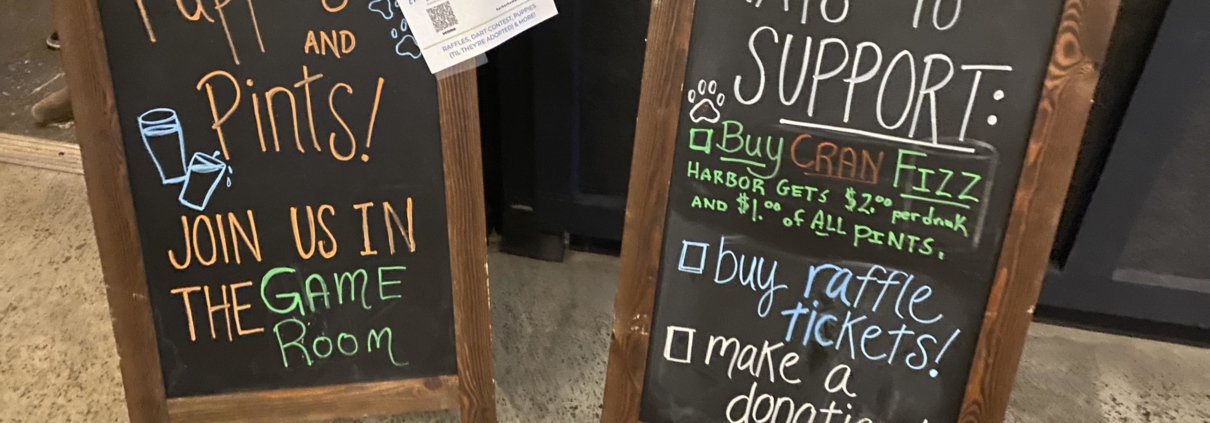 AND
Pints!
JOIN US IN
THE GAME
ROOM
RAFFLES, DART CONTEST, PUPPIES
(TIL THEY'RE ADOPTED) & MORE!
SUPPORT:
Buy CRAN FIZZ
HARBOR GETS $2.00 per drink
AND $1.00 of ALL PINTS.
buy raffle
tickets!
make a